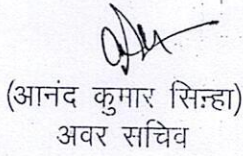 (आनंद कुमार सिन्हा)
अवर सचिव